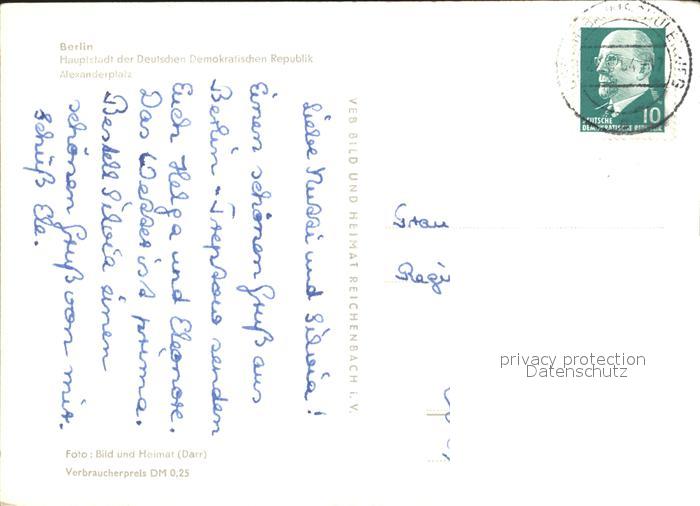 Berlin
Hauptstadt der Deutschen Demokratischen Republik
Alexanderplatz
Liebe Mutti und Silvia!
Einen schönen Gruß aus
Berlin-Treptow senden
Euch Helga und Eleonore.
Das Wetter ist prima.
Bestell Silvia einen
schönen Gruß von mir.
Ele.
Foto: Bild und Heimat (Darr)
Verbraucherpreis DM 0,25
VEB BILD UND HEIMAT REICHENBACH i. V.
10
DEUTSCHE
DEMOKRATISCHE REPUBLIK
Frau
privacy protection
Datenschutz